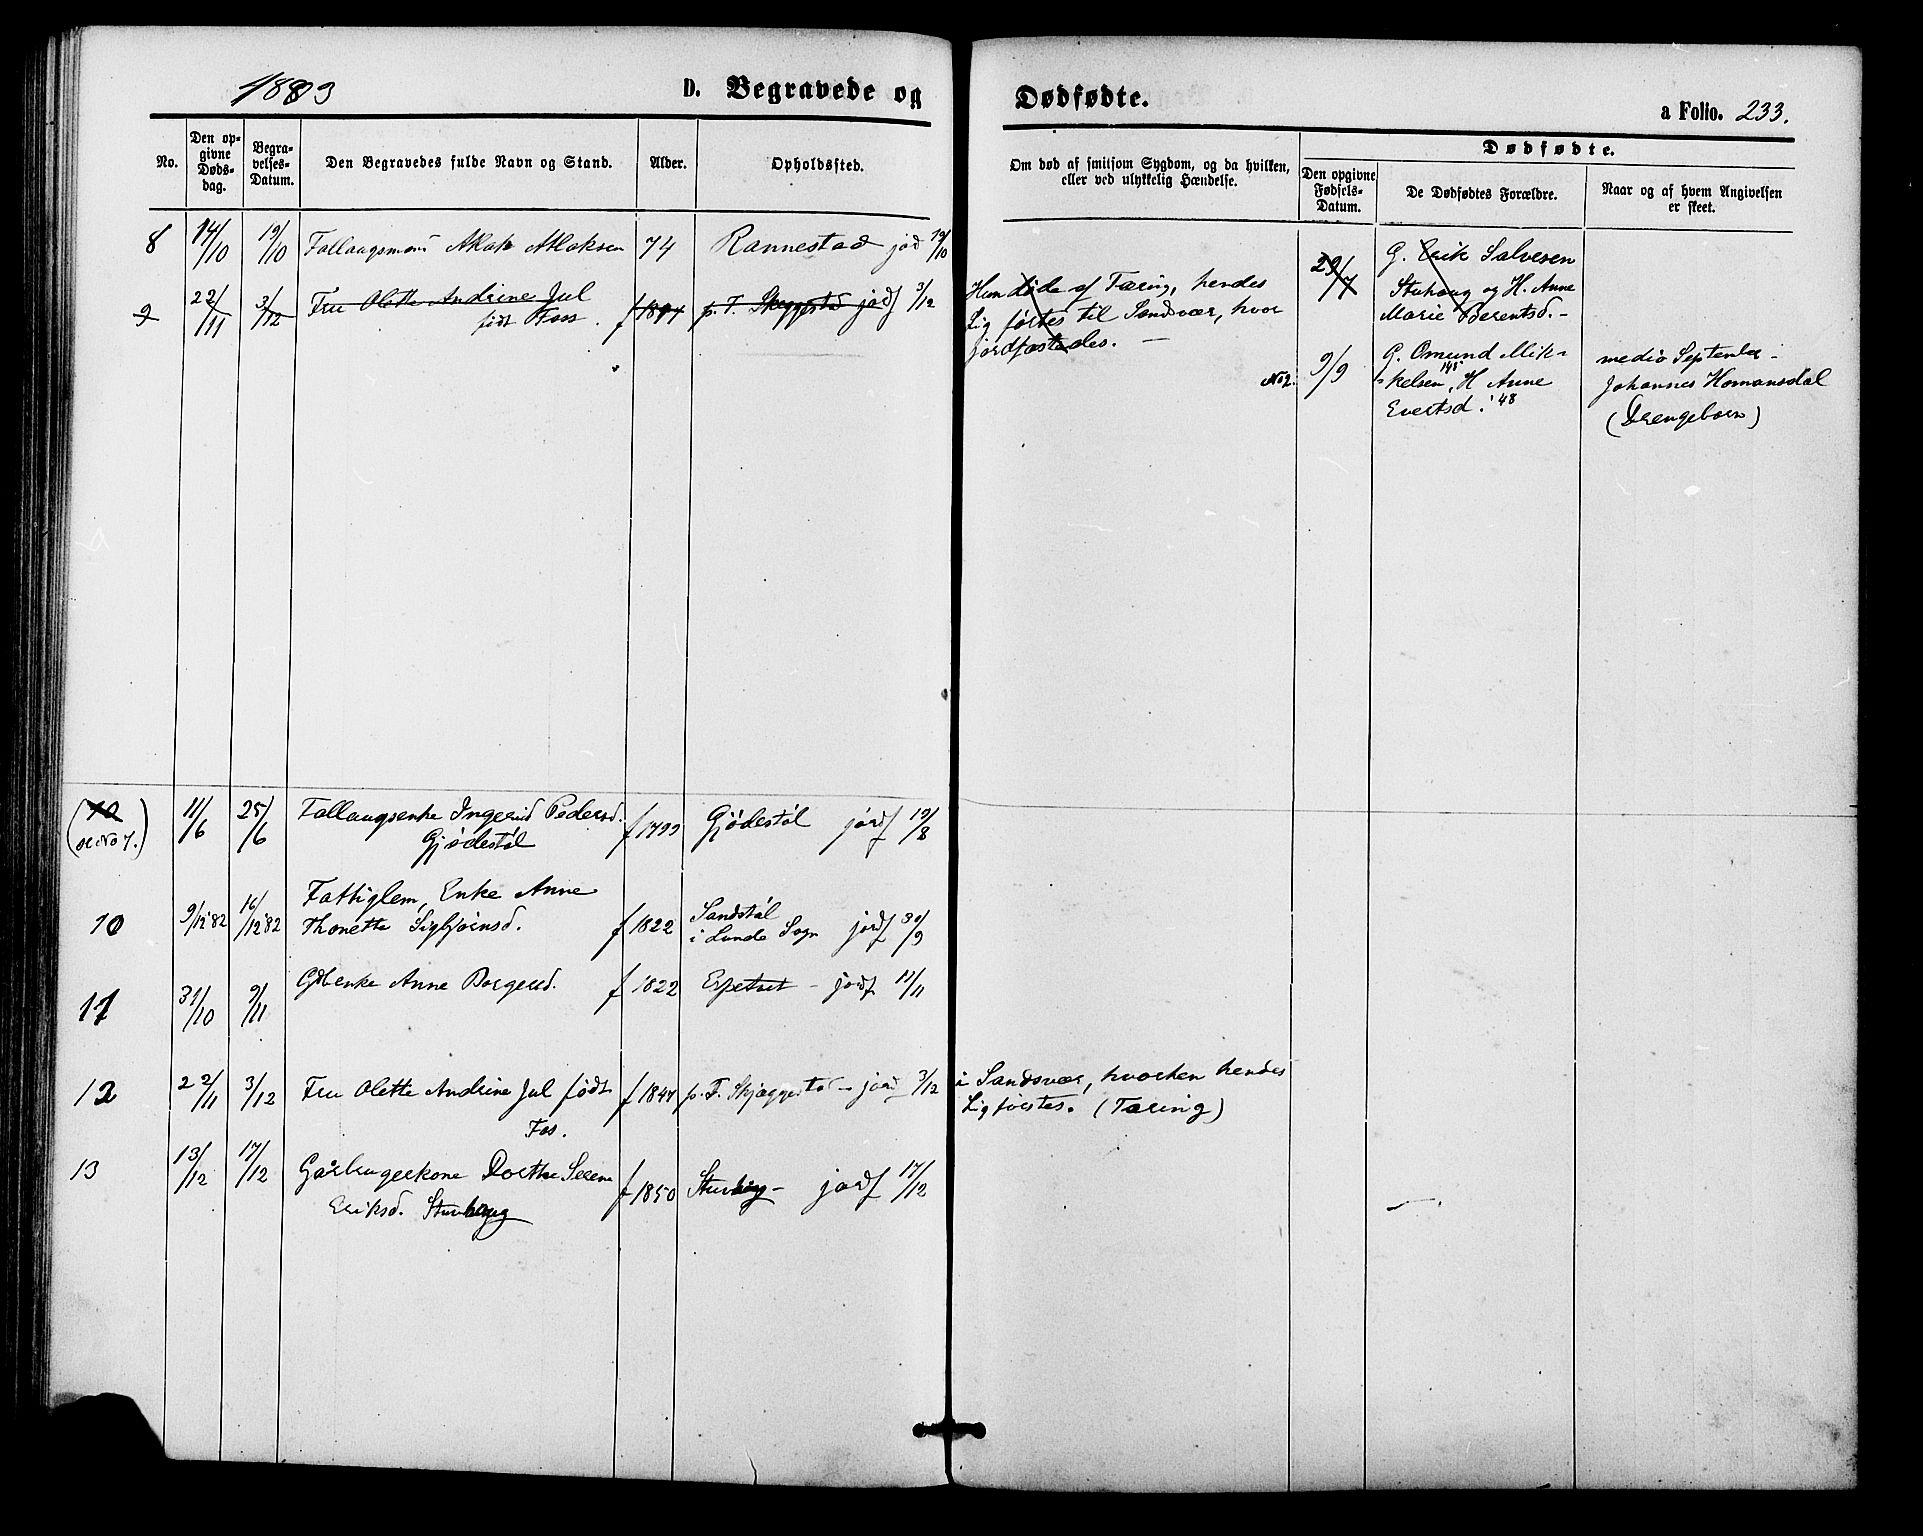 1883
D. Begravede og
Dødfødte.
a Folio. 233.
No.
Den op-
givne
Døds-
dag.
Begra-
velses-
Datum.
Den Begravedes fulde Navn og Stand.
Alder.
Opholdssted.
Om død af smitsom Sygdom, og da hvilken,
eller ved ulykkelig Hændelse.
Dødfødte.
Den opgivne
Fødsels-
Datum.
De Dødfødtes Forældre.
Naar og af hvem Angivelsen
er skeet.
8 14/10 19/10 Fallaugsmand Aslak Aslaksen 74 Rannestad jord 19/10
9 22/11 3/12 Fru Olette Andrine Jul
født Foss. f 1847 p. T. Skeggestad jordf 3/12
Hun døde af Tæring, hendes
Lig førtes til Sandsvær, hvor
jordfæstedes. —
29/7 G. Erik Salvesen
Stuhaug og H. Anne
Marie Berentsd. -
No 2. 9/9 G. Omund Mik-
kelsen '45, H Anne
Evertsd. '48
medio September -
Johannes Homansdal
(Drengebarn)
(10
se No 7.) 11/6 25/6 Fallaugsenke Ingerid Pedersd.
Gjödestöl f 1799 Gjödestöl jordf 19/8
10 9/12 82 16/12 82 Fattiglem, Enke Anne
Thonette Sigbjörnsd. f 1822 Sandstöl
i Lunde Sogn jordf 30/9
11 31/10 9/11 Gdbenke Anne Borgersd. f 1822 Espetvet - jordf 11/11
12 22/11 3/12 Fru Olette Andrine Jul født
Fos. f 1847 p. T. Skjæggestad - jord 3/12 i Sandsvær, hvorhen hendes
Lig førtes. (Tæring)
13 13/12 17/12 Gårbrugerkone Dorthe Serine
Eriksd. Stuvhaug f 1850 Stuvhaug - jordf 17/12